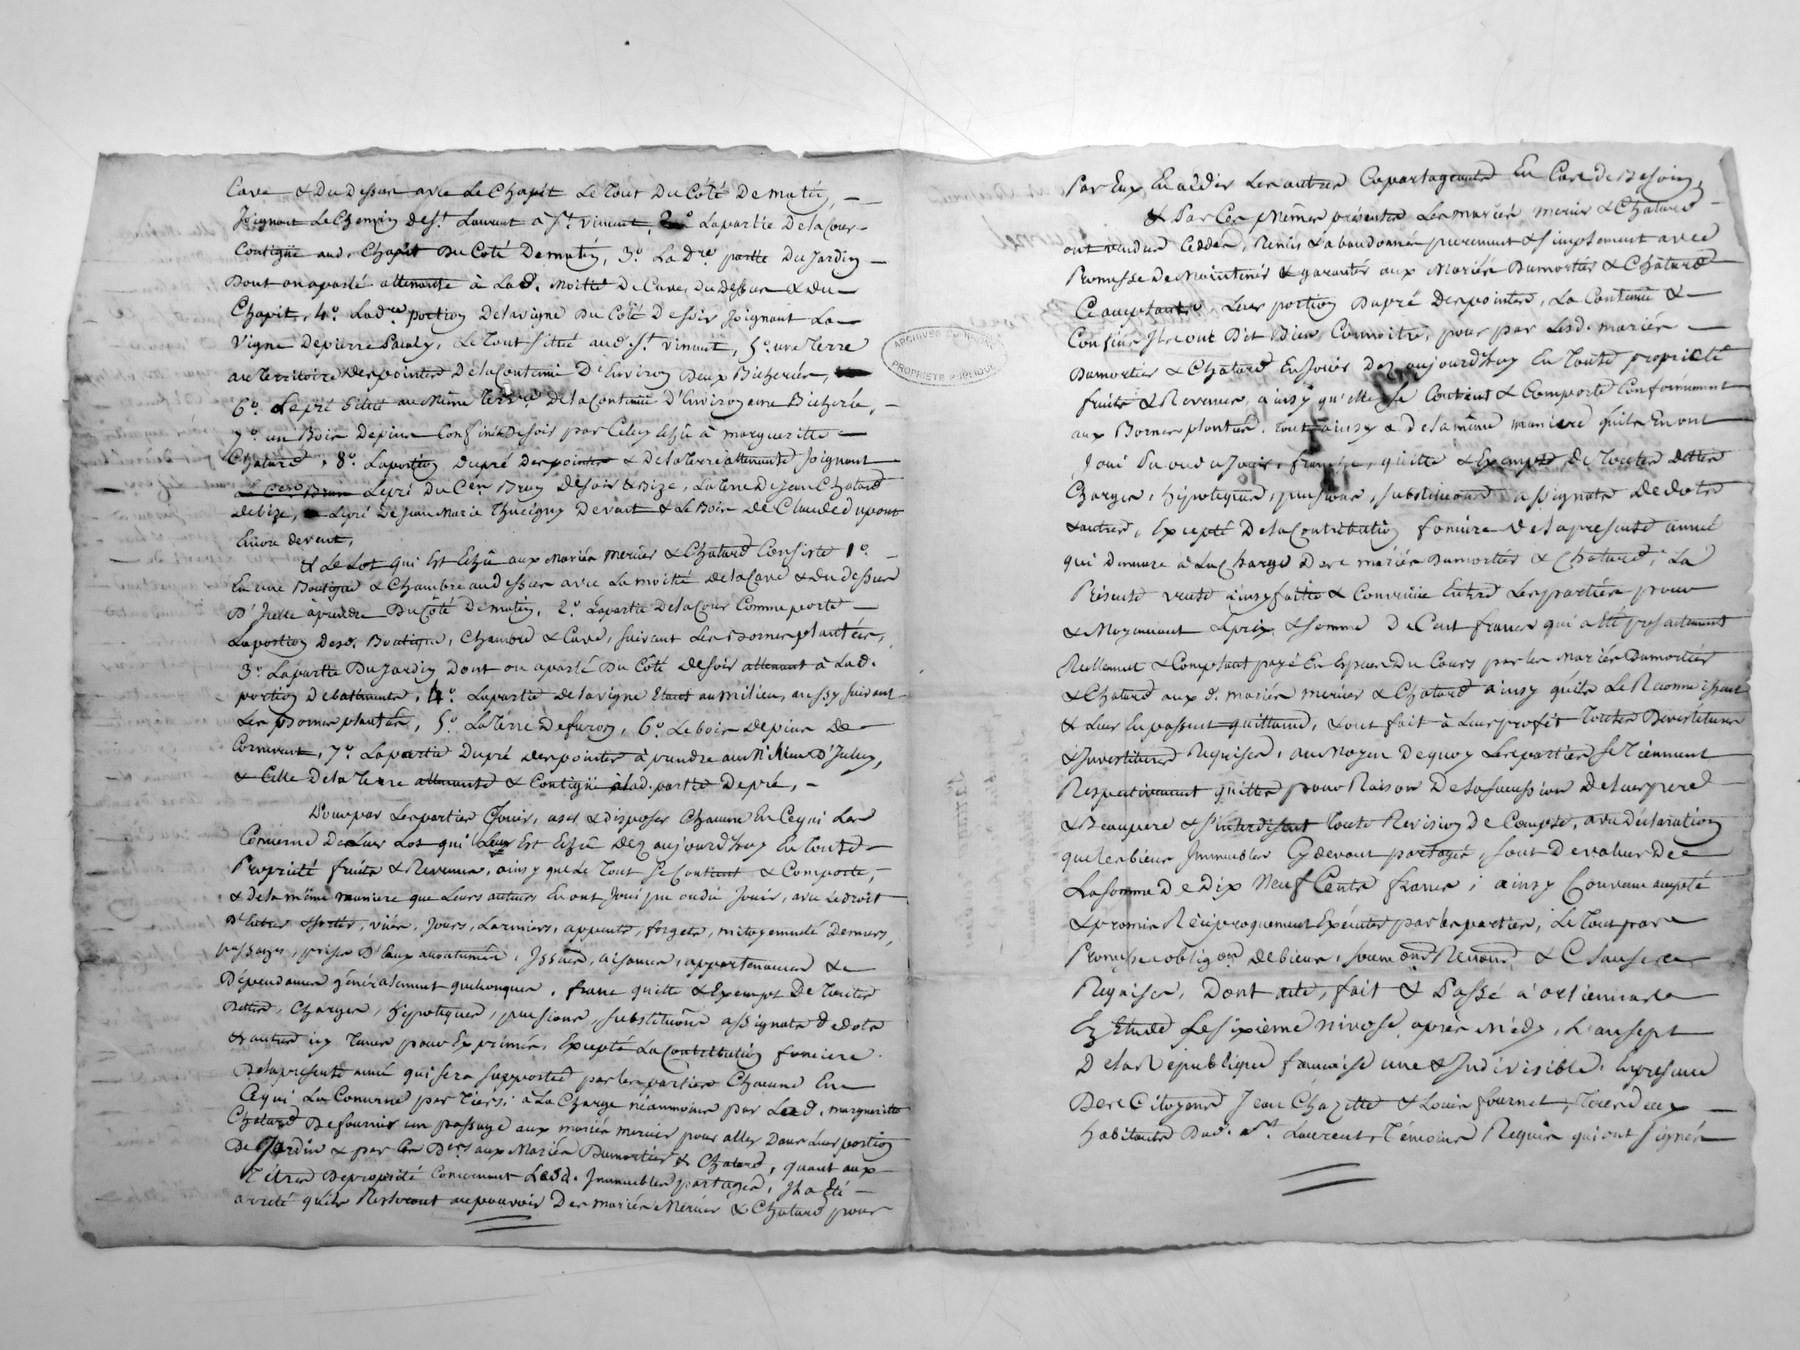 Cave & Du Dessus avec Le Chapit Le Tout Du Côté De matin,
Joignant Le Chemin de St. Laurent à St. vincent, 2º La partie De la Cour
Contigüe aud. Chapit Du Coté De matin, 3º. La Dre. partie Du Jardin
Dont on a parlé attenante à La d. moitié De Cave, du Dessus & du
Chapit, 4º. La dre. portion De la vigne Du Côté De soir Joignant La
Vigne De pierre, Le Tout situé aud. St. vincent, 5º. une Terre
au Territoire des pointes De la Contenue D'Environ Deux Bicherées,
6º. Le pré situé au Même Terre. De la Contenue D'Environ une Bicherée,
7º. un Bois De pins Confiné De soir par Celuy Echû à margueritte
Chatard, 8º. La portion Du pré Des pointes & De la Terre attenante Joignant
Le pré Du Cen. Brun De soir & Bize, La Terre De Jean Chatard
De bize, Le pré De Jean Marie Thucigny De vent & Le Bois De Claude dupont
Encore de vent,
& Le Lot qui Est Echû aux Mariés mercier & Chatard Consiste 1º.
En une Boutique & Chambre au dessus avec La moitié De la Cave & du dessus
D'Icelle à prendre Du Côté De matin, 2º. La partie De la Cour Comme porte
La portion Desd. Boutique, Chambre & Cave, suivant Les Bornes plantées,
3º. La partie Du Jardin Dont on a parlé Du Côté De soir attenant à La d.
portion De batiments, 4º. La partie De la vigne Etant au milieu, aussy suivant
Les Bornes plantées, 5º. La Terre De furon, 6º. Le bois De pins De
Corravent, 7º. La partie Du pré Des pointes à prendre au Milieu D'Iceluy,
& Celle De la Terre attenante & Contigüe à lad. partie De pré,
Pour par Les parties Jouir, user & disposer Chacune En Ce qui La
Concerne De Leur Lot qui Leur Est Echû Dez aujourd'huy En Toute
Propriété fruits & Revenus, ainsy que Le Tout se Contient & Comporte,
& De la même maniere que Leurs auteurs En ont Joui pu ou dû Jouir, avec Le droit
D'Entrées & sorties, vües, Jours, Larmiers, appents, forgets, mitoyenneté De murs,
passages, prises D'Eaux accoutumées, Issües, aisances, appartenances &
Dépendances généralement quelconques, franc quitte & Exempt De Toutes
Dettes, Charges, hypoteques, pensions, substitutions assignats De dots
& autres icy Tenus pour Exprimés, Excepté La Contribution fonciere
De la presente année qui sera supportée par les parties Chacune En
Ce qui La Concerne par Tiers; à La Charge néanmoins par Lad. margueritte
Chatard De fournir un passage aux mariés mercier pour aller Dans Leur portion
De Jardin & par Ces Ders. aux Mariés Dumortier & Chatard, quant aux
Titres De propriété Concernant Lesd. Immeubles partagés, Il a Eté
arreté qu'ils Resteront au pouvoir Des mariés Mercier & Chatard pour
Par Eux En aider Les autres Copartageants En Cas de Besoin,
& Par Ces Mêmes présentes Les mariés mercier & Chatard
ont vendus Ceddés, Remis & abandonnés purement & simplement avec
Promesse De Maintenir & garantir aux Mariés Dumortier & Chatard
Ce acceptants, Leur portion Du pré Des pointes, La Contenue &
Confins Ils ont Dit Bien Connoitre, pour par Lesd. mariés
Dumortier & Chatard En Jouir Dez aujourd'huy En Toute propriété
fruits & Revenus, ainsy qu'elle se Contient & Comporte Conformément
aux Bornes plantées, Tout ainsy & De la même maniere qu'ils En ont
Joui Pu ou du Jouir, franche, quitte & Exempte De Toutes dettes
Charges, hypoteques, pensions, substitutions assignats De dots
& autres, Excepté De la Contribution fonciere De la presente année
qui Demeure à La Charge Des mariés Dumortier & Chatard; La
Présente vente ainsy faitte & Convenüe Entre Les parties pour
& Moyennant Le prix & somme De Cent francs qui a Eté presentement
Réellement & Comptant payé En Especes Du Cours par les Mariés Dumortier
& Chatard aux d. mariés mercier & Chatard ainsy qu'ils Le Reconnoissent
& Leur En passent quittance, & ont fait à Leur profit Toutes Devestitures
& Investitures Requises, au Moyen De quoy Les parties se Tiennent
Respectivement quittes pour Raison De la succession De leur pere
& Beaupere & s'interdisent Toute Revision De Compte, avec Déclaration
que les biens Immeubles Cy devant partagés, sont De valeur De
La somme De Dix Neuf Cents francs; ainsy Convenu accepté
& promis Reciproquement Exécuter par les parties, Le Tout par
Promesse oblig.on De biens, soum.ons Renon.d & Clauses
Requises, Dont acte, fait & Passé à
En Etude Le sixieme nivose, après Midy, L'an sept
De la République française une & Indivisible. En presence
Des Citoyens Jean Chazette & Louis fournet, Tous deux
habitants Dud. St. Laurent, Témoins Requis qui ont signés
ARCHIVES
PROPRIETE PUBLIQUE